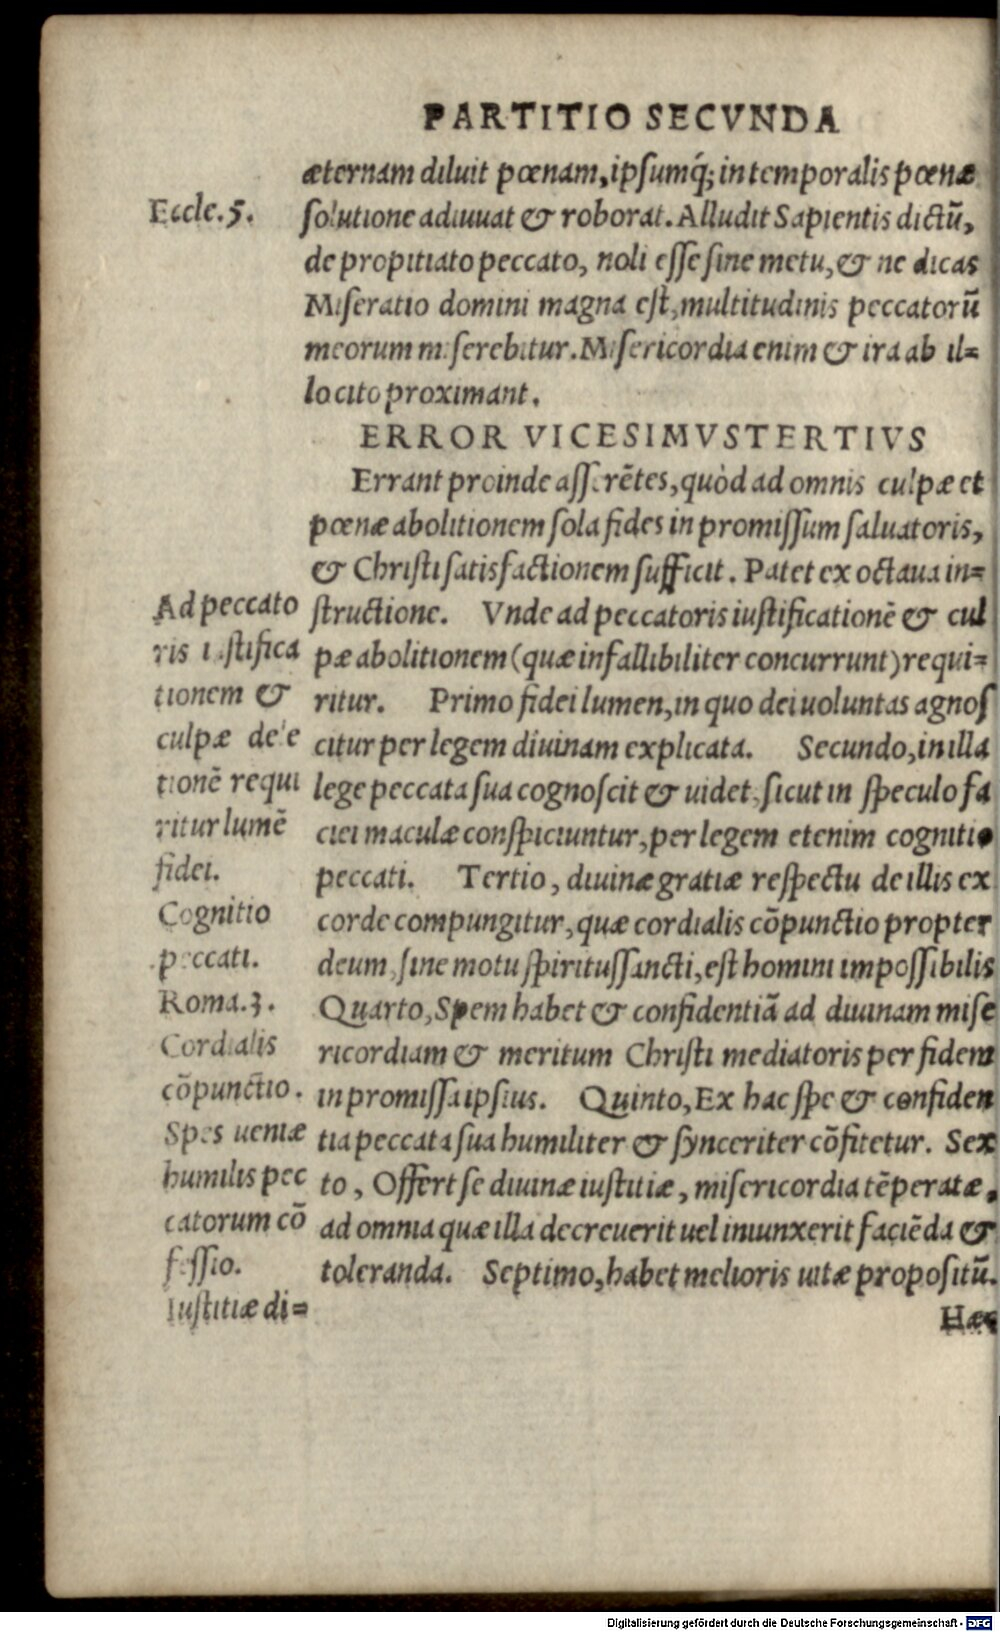 PARTITIO SECVNDA
æternam diluit pœnam, ipsumq́; in temporalis pœnæ
Eccle. 5.
solutione adiuuat & roborat. Alludit Sapientis dictũ,
de propitiato peccato, noli esse sine metu, & ne dicas
Miseratio domini magna est, multitudinis peccatorũ
meorum miserebitur. Misericordia enim & ira ab il=
lo cito proximant.
ERROR VICESIMVSTERTIVS
Errant proinde asserẽtes, quòd ad omnis culpæ et
pœnæ abolitionem sola fides in promissum saluatoris,
& Christi satisfactionem sufficit. Patet ex octaua in=
structione. Vnde ad peccatoris iustificationẽ & cul
pæ abolitionem (quæ infallibiliter concurrunt) requi=
ritur. Primo fidei lumen, in quo dei uoluntas agnos
citur per legem diuinam explicata. Secundo, in illa
lege peccata sua cognoscit & uidet, sicut in speculo fa
ciei maculæ conspiciuntur, per legem etenim cognitio
peccati. Tertio, diuinæ gratiæ respectu de illis ex
corde compungitur, quæ cordialis cõpunctio propter
deum, sine motu spiritussancti, est homini impossibilis
Quarto, Spem habet & confidentiã ad diuinam mise
ricordiam & meritum Christi mediatoris per fidem
in promissa ipsius. Quinto, Ex hac spe & confiden
tia peccata sua humiliter & synceriter cõfitetur. Sex
to, Offert se diuinæ iustitiæ, misericordia tẽperatæ,
ad omnia quæ illa decreuerit uel iniunxerit faciẽda &
toleranda. Septimo, habet melioris uitæ propositũ.
Hæc
Ad peccato
ris iustifica
tionem &
culpæ dele
tionẽ requi
ritur lumẽ
fidei.
Cognitio
peccati.
Roma. 3.
Cordialis
cõpunctio.
Spes ueniæ
humilis pec
catorum cõ
fessio.
Iustitiæ di=
Digitalisierung gefördert durch die Deutsche Forschungsgemeinschaft - DFG